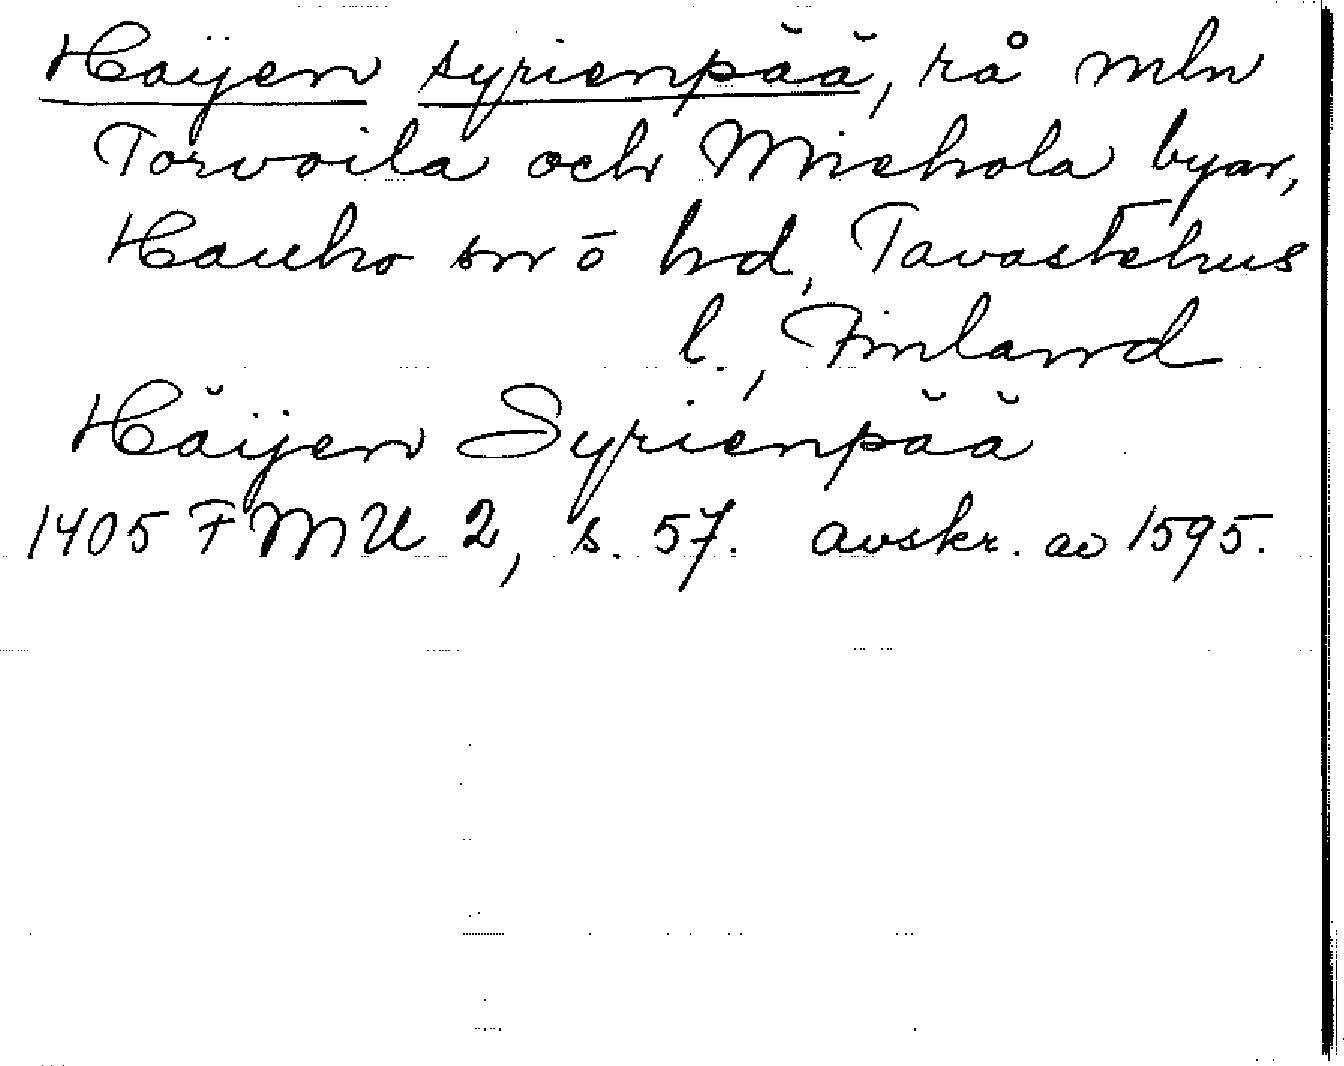 Haÿen syrienpää, rå mln
Torvoila och Miehola byar,
Hauho sn ö hd, Tavastehus
l., Finland
Häÿen Syrienpää
1405 FMU 2, s. 57. avskr. av 1595.